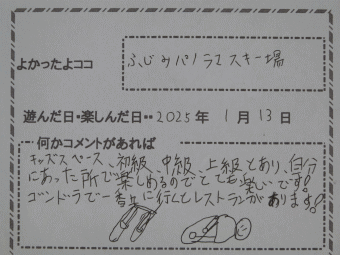 よかったよココ ふじみパノラマスキー場
遊んだ日・楽しんだ日・・2025年 1月 13日
何かコメントがあれば
キッズスペース、初級、中級、上級とあり、自分
にあった所で楽しめるのでとても楽しいです!
ゴンドラで一番上に行くとレストランがあります!